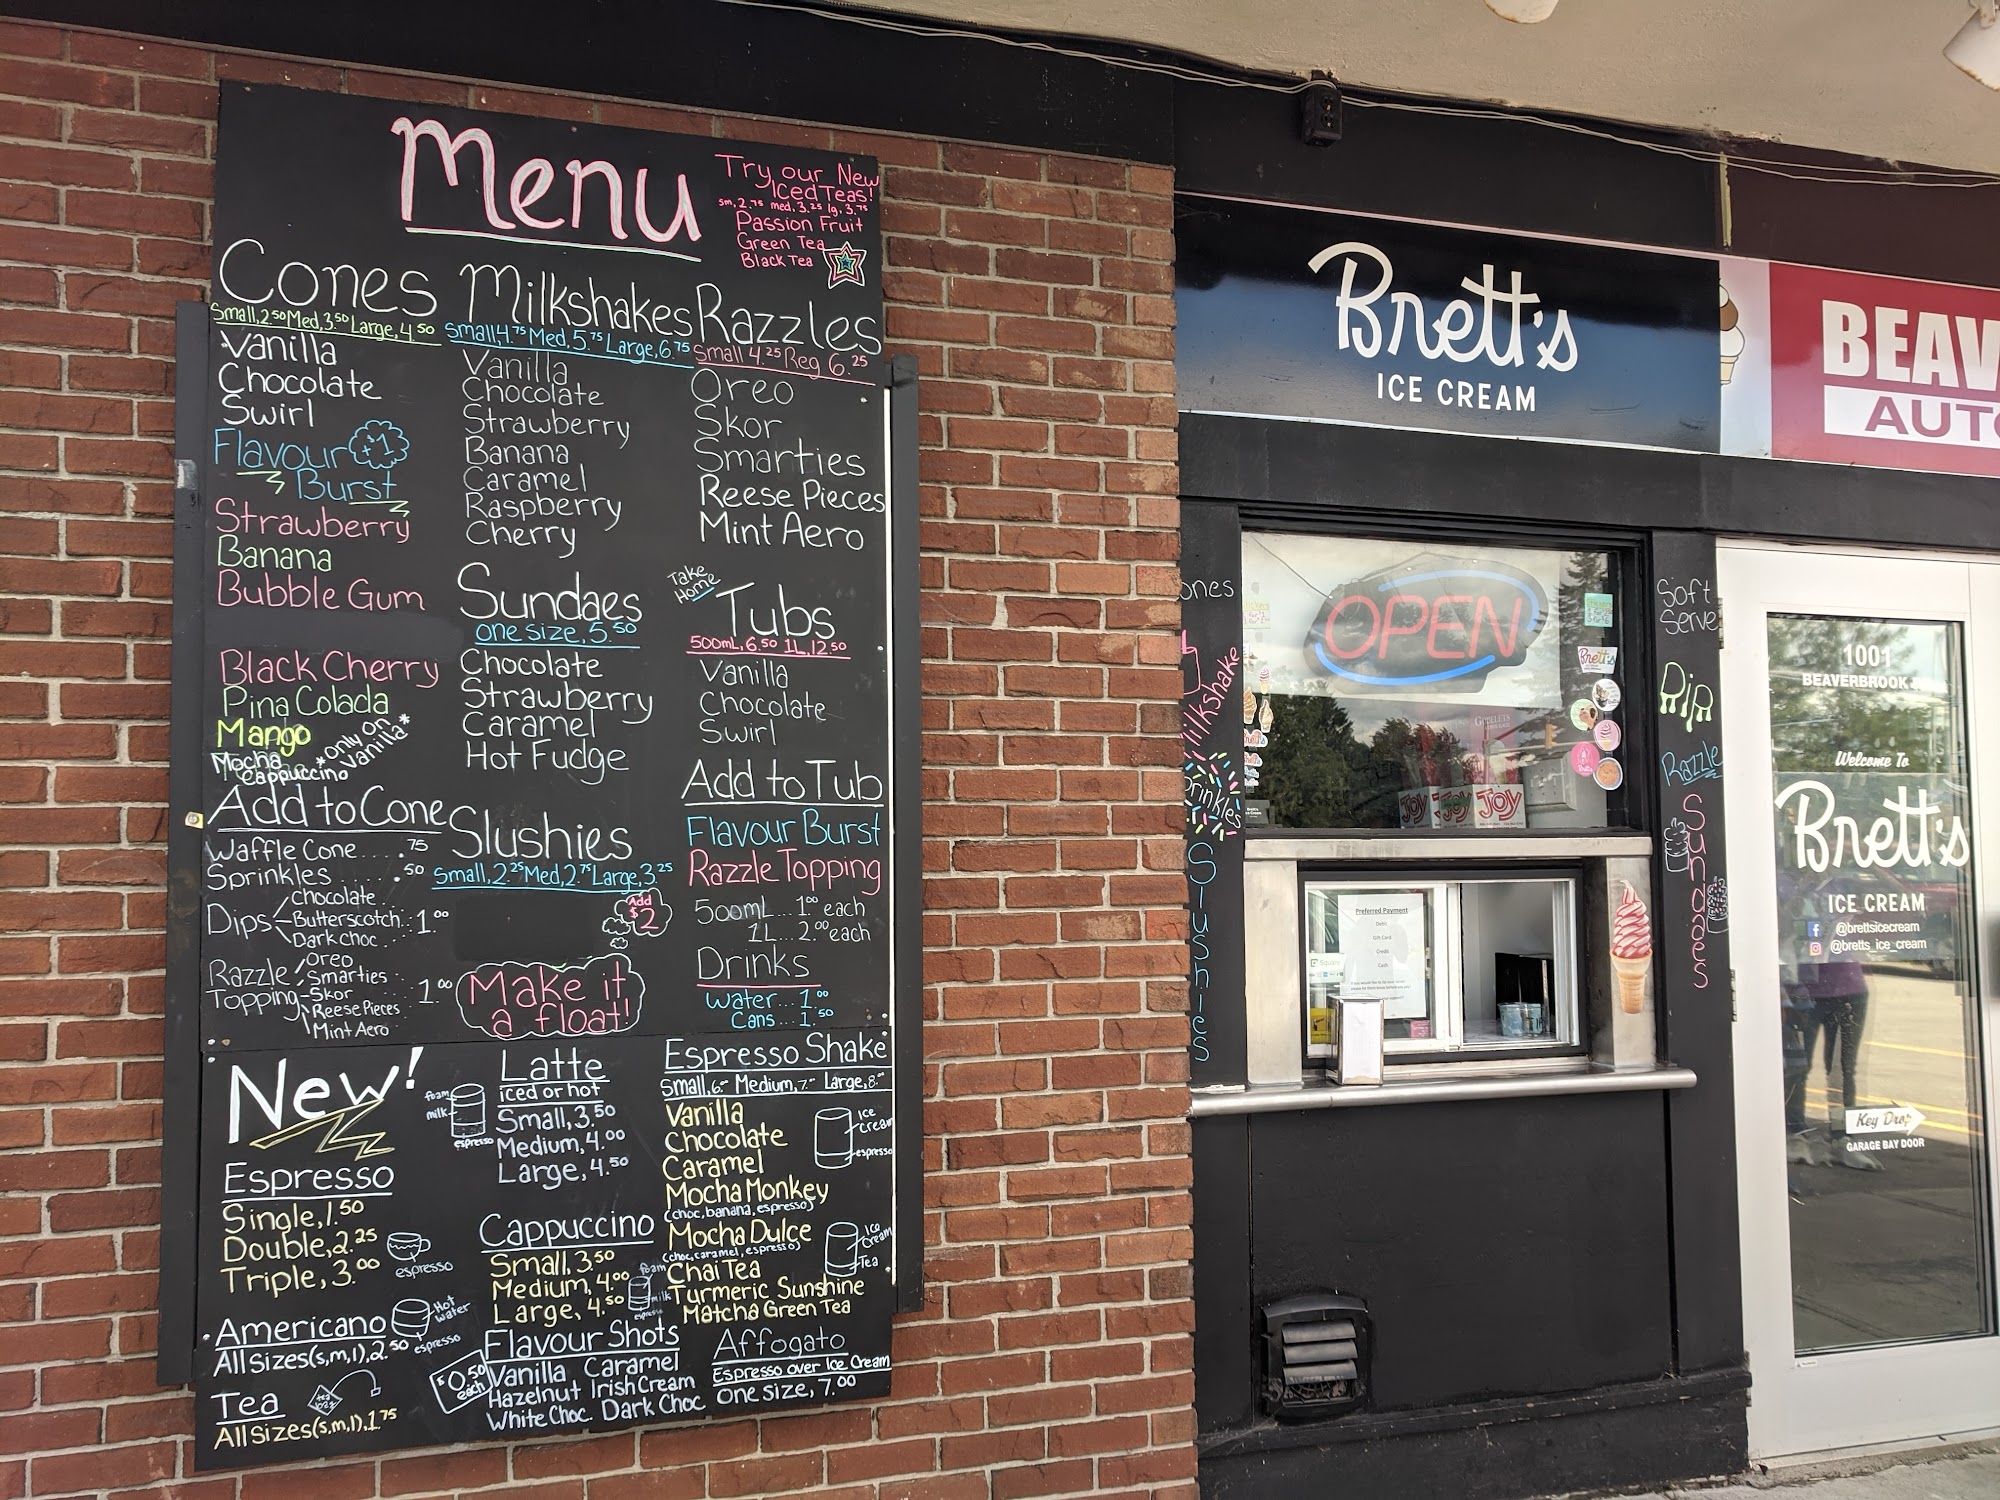 Menu
Try our New
Iced Teas!
sm, 2.75 med, 3.25 lg, 3.75
Passion Fruit
Green Tea
Black Tea
Cones
Small, 2.50 Med, 3.50 Large, 4.50
Vanilla
Chocolate
Swirl
Flavour +$1
Burst
Strawberry
Banana
Bubble Gum
Black Cherry
Pina Colada
Mango
Mocha
Cappuccino
*only on
Vanilla*
Add to Cone
Waffle Cone .... .75
Sprinkles ..... .50
Dips
Chocolate
Butterscotch.. 1.00
Dark choc...
Razzle
Topping
Oreo
Smarties ..
Skor ..... 1.00
Reese Pieces
Mint Aero
Milkshakes
Small, 4.75 Med, 5.75 Large, 6.75
Vanilla
Chocolate
Strawberry
Banana
Caramel
Raspberry
Cherry
Sundaes
one size, 5.50
Chocolate
Strawberry
Caramel
Hot Fudge
Slushies
Small, 2.25 Med, 2.75 Large, 3.25
Add
$2
Make it
a float!
Razzles
Small 4.25 Reg 6.25
Oreo
Skor
Smarties
Reese Pieces
Mint Aero
Take
Home
Tubs
500mL, 6.50 1L, 12.50
Vanilla
Chocolate
Swirl
Add to Tub
Flavour Burst
Razzle Topping
500mL... 1.00 each
1L... 2.00 each
Drinks
Water... 1.00
Cans... 1.50
New!
Espresso
Single, 1.50
Double, 2.25
Triple, 3.00
espresso
Americano
All sizes (s,m,l), 2.50
Hot
Water
espresso
Tea
All sizes (s,m,l), 1.75
Latte
iced or hot
Small, 3.50
Medium, 4.00
Large, 4.50
foam
milk
espresso
Cappuccino
Small, 3.50
Medium, 4.00
Large, 4.50
foam
milk
espresso
Flavour Shots
$0.50
each
Vanilla Caramel
Hazelnut Irish Cream
White Choc. Dark Choc
Espresso Shake
Small, 6.00 Medium, 7.00 Large, 8.00
Vanilla
Chocolate
Caramel
Mocha Monkey
(choc, banana, espresso)
Mocha Dulce
(choc, caramel, espresso)
Chai Tea
Turmeric Sunshine
Matcha Green Tea
Ice
Cream
espresso
Ice
Cream
Tea
Affogato
Espresso over Ice Cream
one size, 7.00
Brett's
ICE CREAM
BEAV
AUTO
OPEN
ones
Milkshake
Sprinkles
Slushies
Soft
Serve
Dip
Razzle
Sundaes
Brett's
JOY JOY JOY
Preferred Payment
Debit
Gift Card
Credit
Cash
Square
1001
BEAVERBROOK
Welcome To
Brett's
ICE CREAM
@brettsicecream
@bretts_ice_cream
Key Drop
GARAGE BAY DOOR